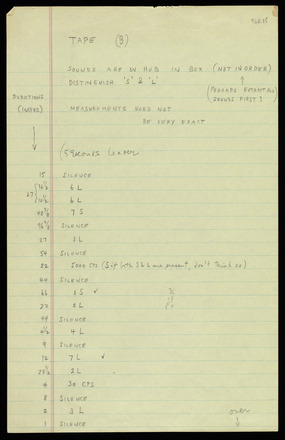 TAPE (B)
SOUNDS ARE ON HUB IN BOX (NOT IN ORDER)
DISTINGUISH 'S' & 'L'
(PERHAPS
SOUNDS FIRST)
DURATIONS
(INCHES)
MEASUREMENTS NEED NOT
BE VERY EXACT
(5 SECONDS LEADER
15 SILENCE
27 { 16 1/2 6 L
10 1/2 6 L
7 S
SILENCE
27 2 L
54 SILENCE
22 5000 CPS (S if both S & L are present, don't think so)
44 SILENCE
66 2 S ✓
22 2 L
44 SILENCE
4 L
9 SILENCE
12 7 L ✓
2 L
4 30 CPS
8 SILENCE
2 3 L
1 SILENCE
over